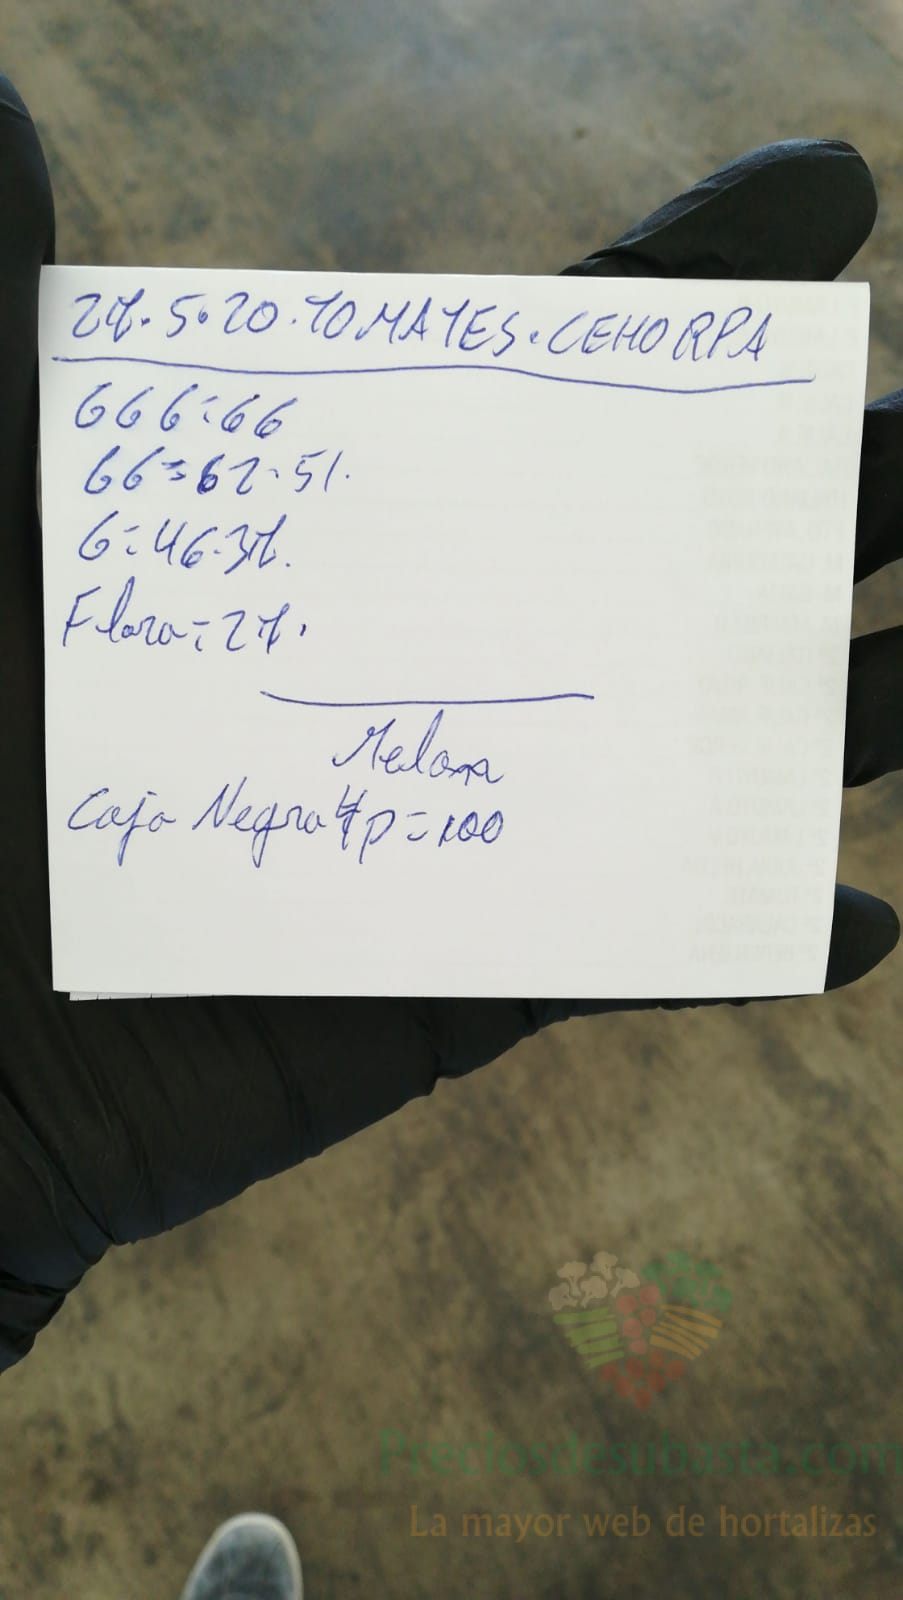 27.5.20.TOMATES.CEHORPA
GGG=66
GG=62-51.
G=46-37.
Flora=27.
Melona
Caja Negra 4p=100
Preciosdesubasta.com
La mayor web de hortalizas